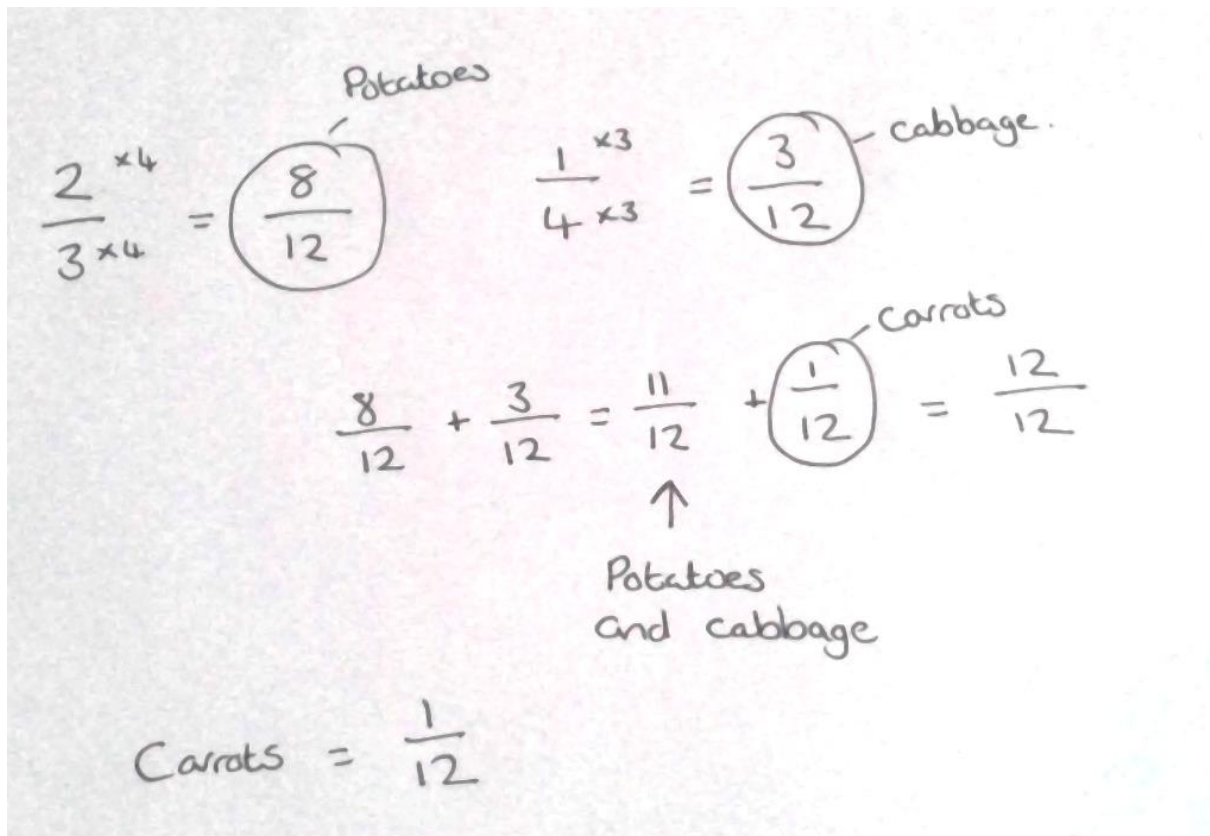 Potatoes
2 ×4 / 3 ×4 = 8/12
1 ×3 / 4 ×3 = 3/12
cabbage.
Carrots
8/12 + 3/12 = 11/12 + 1/12 = 12/12
↑
Potatoes
and cabbage
Carrots = 1/12